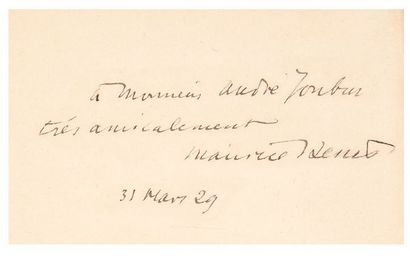 à Monsieur André Joubin
très amicalement
Maurice Denis
31 Mars 29